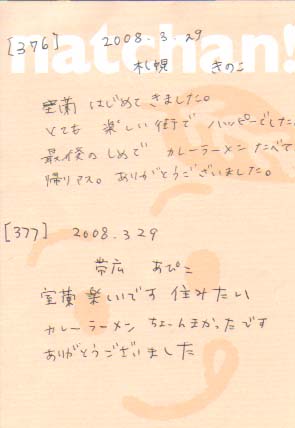 natchan!
[376] 2008.3.29
札幌 きのこ
室蘭 はじめてきました。
とても 楽しい街で ハッピーでした
最後のしめで カレーラーメン たべて
帰りマス。ありがとうございました。
[377] 2008.3.29
帯広 あぴこ
室蘭 楽いです 住みたい
カレーラーメン ちょーんまかったです
ありがとうございました